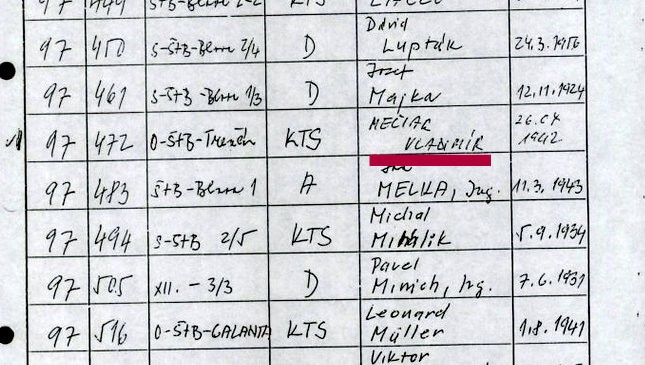 97 450 S-ŠtB-Blava 2/4 D Dávid Lupták 24.3.1956
97 461 S-ŠtB-Blava 1/3 D Jozef Majka 12.11.1924
97 472 O-ŠtB-Trenčín KTS MEČIAR VLADIMÍR 1942
97 483 ŠtB-Blava 1 A Ján MELKA, Ing. 11.3.1943
97 494 S-ŠtB 2/5 KTS Michal Mihálik 5.9.1934
97 505 XII. - 3/3 D Pavel Minich, Ing. 7.6.1931
97 516 O-ŠtB-GALANTA KTS Leonard Müller 1.8.1941
Viktor